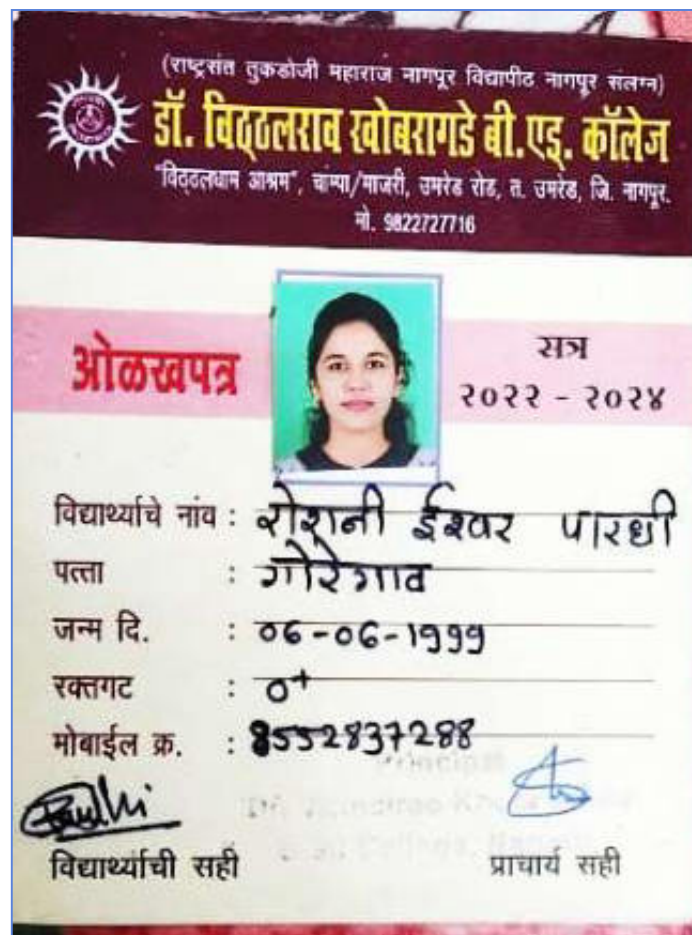 (राष्ट्रसंत तुकडोजी महाराज नागपूर विद्यापीठ नागपूर संलग्न)
डॉ. विठ्ठलराव खोबरागडे बी.एड्. कॉलेज
"विठ्ठलधाम आश्रम", चाम्पा/माजरी, उमरेड रोड, त. उमरेड, जि. नागपूर.
मो. 9822727716
ओळखपत्र
सत्र
२०२२ - २०२४
विद्यार्थ्याचे नांव : रोशनी ईश्वर पारधी
पत्ता : गोरेगाव
जन्म दि. : 06-06-1999
रक्तगट : O+
मोबाईल क्र. : 8552837288
Principal
विद्यार्थ्याची सही
प्राचार्य सही